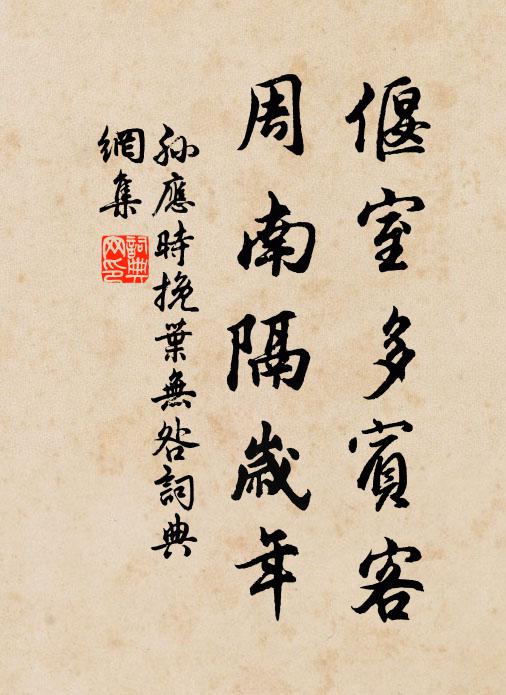 偃室多賓客
周南隔歲年
孫應時挽葉無咎詞典
網集
詞典
网印